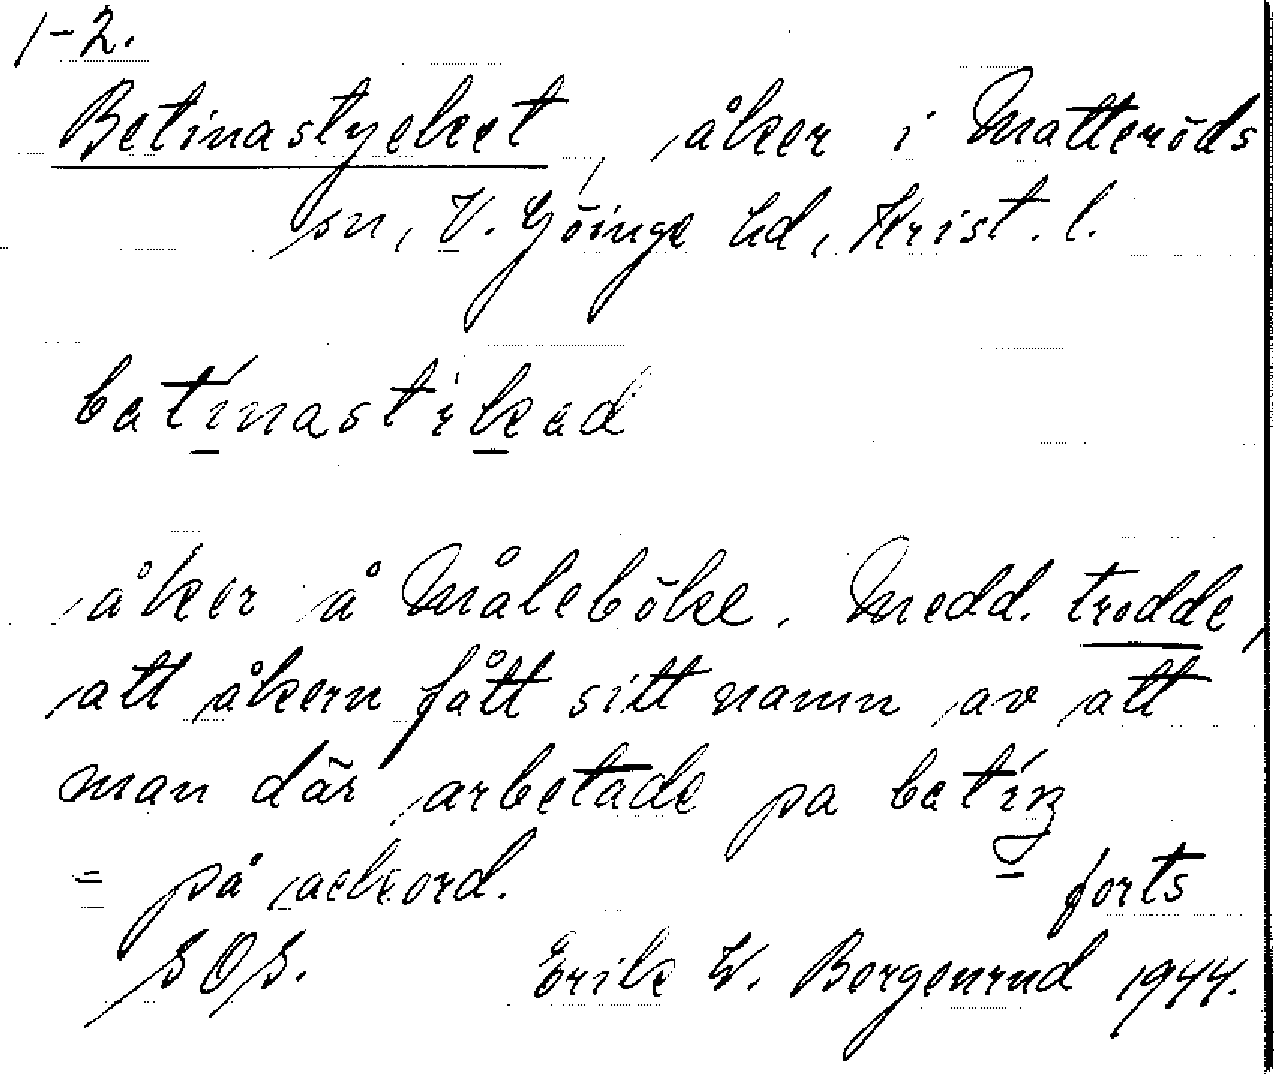 1-2.
Betinastycket, åker i Matteröds
sn, V. Göinge hd, Krist. l.
betinastikad
åker å Måleböke. Medd. trodde,
att åkern fått sitt namn av att
man där arbetade pa beting
= på ackord.
forts
SOS. Erik W. Borgenrud 1944.